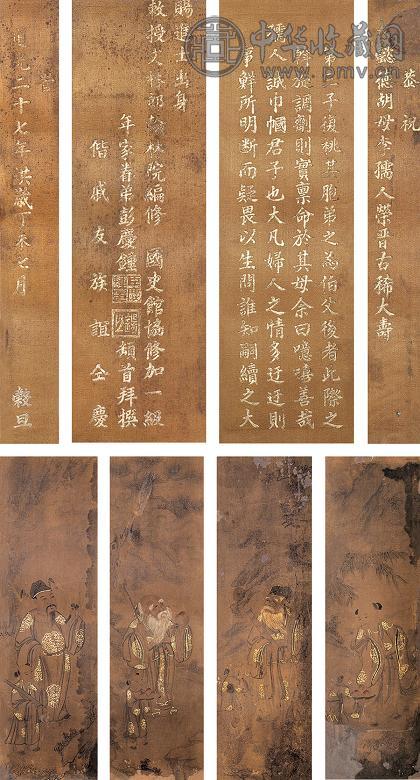 中华收藏网
恭祝
懿德胡母李孺人榮晉古稀大壽
第二子復祧其胞弟之為伯父後者此際之
斡旋調劑則實稟命於其母余曰噫嘻善哉
孺人誠巾幗君子也大凡婦人之情多迂迂則
鮮所明斷而疑畏以生問誰知嗣續之大
賜進士出身
敕授文林郎翰林院編修 國史館協修加一級
年家眷弟彭慶鐘頓首拜撰
偕戚友族誼仝慶
旹
光二十七年洪歲丁未七月 穀旦